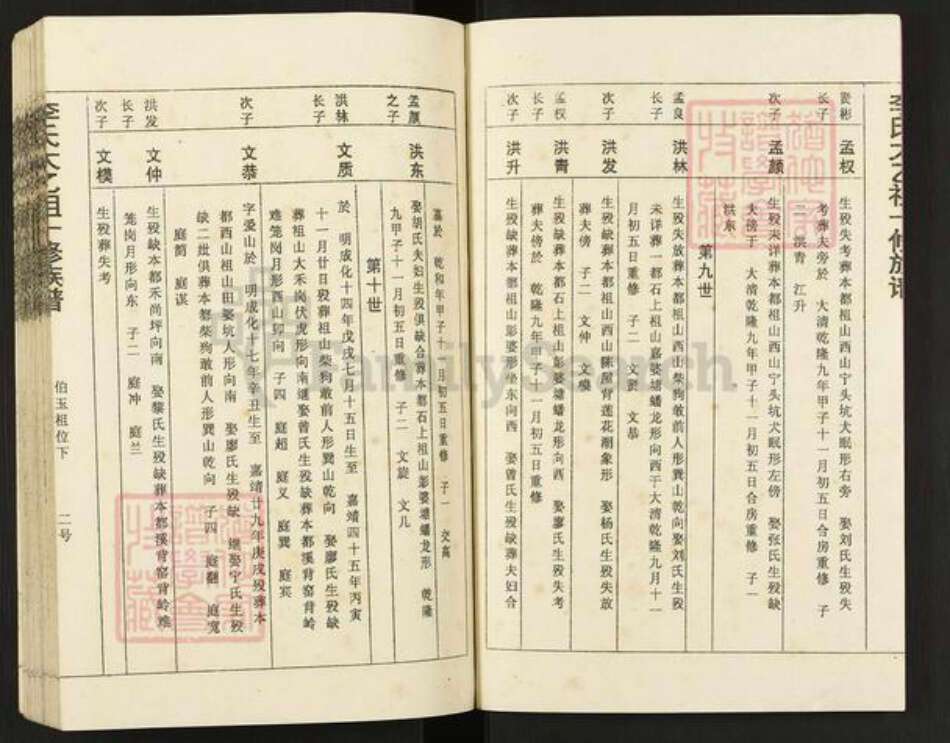 长子 孟权
生殁失考葬本都祖山西山宁头坑犬眠形右旁 娶刘氏生殁失
考葬夫旁於 大清乾隆九年甲子十一月初五日合房重修 子
二 洪青 江升
次子 孟颜
生殁未详葬本都祖山西山宁头坑犬眠形左傍 娶张氏生殁缺
大傍于 大清乾隆九年甲子十一月初五日合房重修 子一
洪东
第九世
孟良长子 洪林
生殁失放葬本都祖山西山柴狗敢前人形巽山乾向娶刘氏生殁
未详葬一都石上祖山嘉婆塘蟠龙形向西于大清乾隆九月十一
月初五日重修 子二 文质 文恭
次子 洪发
生殁缺葬本都祖山西山陈屋背莲花潮象形 娶杨氏生殁失放
葬夫傍 子二 文仲 文模
孟权长子 洪青
生殁缺葬本都石上祖山彭婆塘蟠龙形向西 娶廖氏生殁失考
葬夫傍於 乾隆九年甲子十一月初五日重修
次子 洪升
生殁缺葬本都祖山彭婆形坐东向西 娶曾氏生殁缺葬夫妇合
墓於 乾和年甲子十一月初五日重修 子一 文高
孟颜之子 洪东
娶胡氏夫妇生殁俱缺合葬本都石上祖山彭婆塘蟠龙形 乾隆
九甲子十一月初五日重修 子二 文旋 文儿
第十世
洪林长子 文质
於 明成化十四年戊戌七月十五日生至 嘉靖四十五年丙寅
十一月廿日殁葬祖山柴狗敢前人形巽山乾向 娶廖氏生殁缺
葬祖山大禾岗伏虎形向南继娶曾氏生殁缺葬本都溪背窑背岭
难笼岗月形西山卯向 子四 庭超 庭义 庭巽 庭宾
次子 文恭
字爱山於 明成化十七年辛丑生至 嘉靖廿九年庚戌殁葬本
都西山祖山田婆坑人形向南 娶廖氏生殁缺 继娶宁氏生殁
缺二妣俱葬本都柴狗敢前人形巽山乾向 子四 庭翻 庭宽
庭简 庭谋
洪发长子 文仲
生殁缺本都禾尚坪向南 娶黎氏生殁缺葬本都溪背窑背岭难
笼岗月形向东 子二 庭冲 庭兰
次子 文模
生殁葬失考
李氏太乙祖十修族谱
伯玉祖位下
二号
FamilySearch